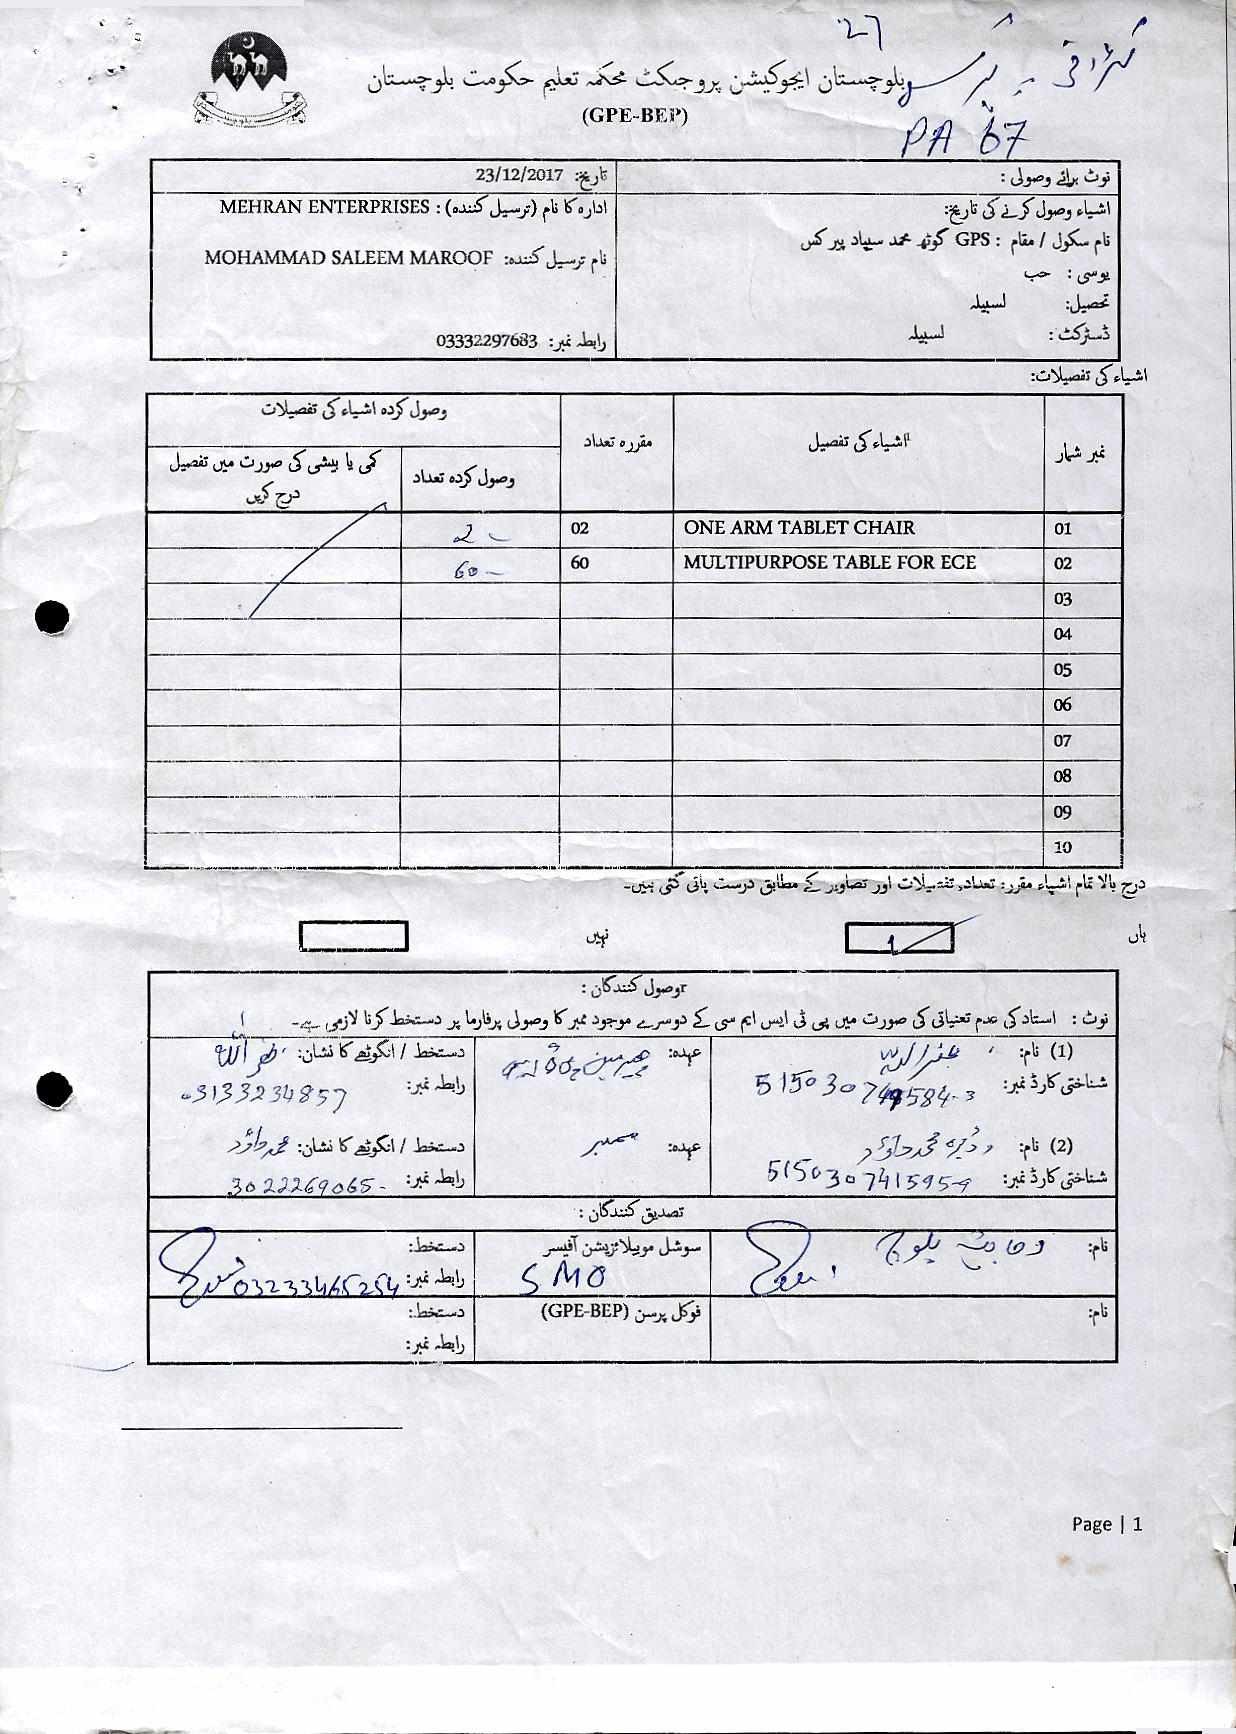 27
PA 67
بلوچستان ایجوکیشن پروجیکٹ محکمہ تعلیم حکومت بلوچستان
(GPE-BEP)
نوٹ برائے وصولی :
اشیاء وصول کرنے کی تاریخ:
نام سکول / مقام : GPS گوٹھ محمد سیپاد پیر کس
یوسی : حب
تحصیل: لسبیلہ
ڈسٹرکٹ : لسبیلہ
تاریخ: 23/12/2017
ادارہ کا نام (ترسیل کنندہ) : MEHRAN ENTERPRISES
نام ترسیل کنندہ: MOHAMMAD SALEEM MAROOF
رابطہ نمبر: 03332297683
اشیاء کی تفصیلات:
نمبر شمار اشیاء کی تفصیل مقررہ تعداد وصول کردہ اشیاء کی تفصیلات
وصول کردہ تعداد کمی یا بیشی کی صورت میں تفصیل درج کریں
01 ONE ARM TABLET CHAIR 02 2
02 MULTIPURPOSE TABLE FOR ECE 60 60
03
04
05
06
07
08
09
10
درج بالا تمام اشیاء مقررہ تعداد، تفصیلات اور تصاویر کے مطابق درست پائی گئی ہیں۔
ہاں نہیں
وصول کنندگان :
نوٹ : استاد کی عدم تعیناتی کی صورت میں پی ٹی ایس ایم سی کے دوسرے موجود ممبر کا وصولی پرفارما پر دستخط کرنا لازمی ہے۔
(1) نام: عہدہ: دستخط / انگوٹھے کا نشان:
شناختی کارڈ نمبر: رابطہ نمبر: 03133234857
(2) نام: وڈیرہ محمد داؤد عہدہ: ممبر دستخط / انگوٹھے کا نشان: محمد داؤد
شناختی کارڈ نمبر: 5150307415959 رابطہ نمبر: 3022269065
تصدیق کنندگان :
نام: بلوچ سوشل موبیلائزیشن آفیسر دستخط:
SMO رابطہ نمبر: 03233465254
نام: فوکل پرسن (GPE-BEP) دستخط:
رابطہ نمبر:
Page | 1